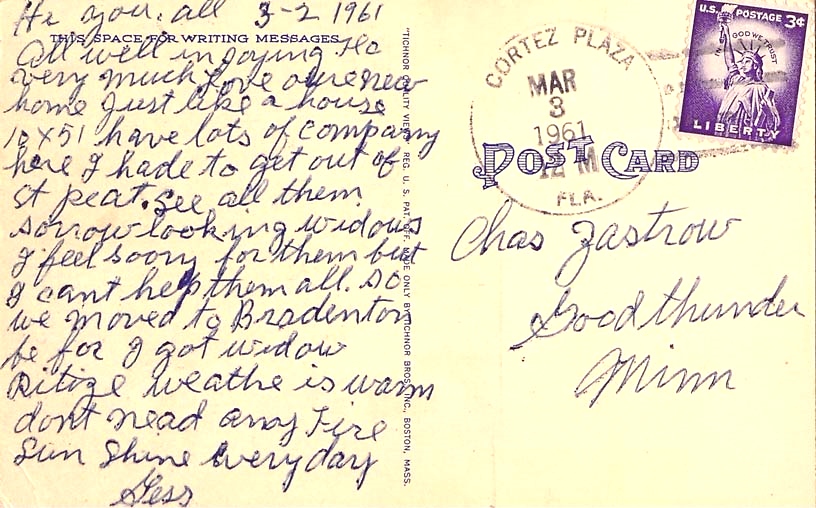 Hi you. all 3-2 1961
THIS SPACE FOR WRITING MESSAGES
All well in joying Flo
very much Love oure new
home Just like a house
10x51 have lots of company
here I hade to get out of
St peat. See all them
sorrow looking widows
I feel soory for them but
I cant help them all. so
we moved to Bradenton
be for I got widow
weathe is warm
dont nead any Fire
Sun Shine Every day
Gess
"TICHNOR QUALITY VIEWS" REG. U. S. PAT. OFF. MADE ONLY BY TICHNOR BROS., INC., BOSTON, MASS.
CORTEZ PLAZA
MAR
3
1961
12 M
FLA.
U.S. POSTAGE 3¢
IN GOD WE TRUST
LIBERTY
POST CARD
Chas Zastrow
Good thunder
Minn